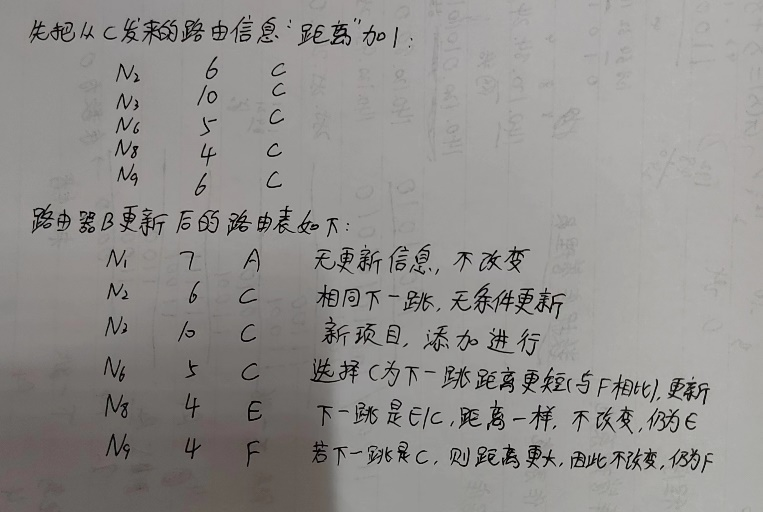 先把从C发来的路由信息"距离"加1:
N₂ 6 C
N₃ 10 C
N₆ 5 C
N₈ 4 C
N₉ 6 C
路由器B更新后的路由表如下:
N₁ 7 A 无更新信息,不改变
N₂ 6 C 相同下一跳,无条件更新
N₃ 10 C 新项目,添加进行
N₆ 5 C 选择C为下一跳距离更短(与F相比),更新
N₈ 4 E 下一跳是E/C,距离一样,不改变,仍为E
N₉ 4 F 若下一跳是C,则距离更大,因此不改变,仍为F